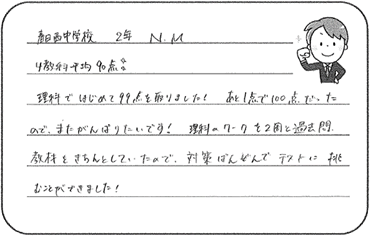 西中学校 2年 N.M
4教科平均90点
理科ではじめて99点を取りました! あと1点で100点だった
ので、またがんばりたいです! 理科のワークを2周と過去問、
教科をきちんとしていたので、対策ばんぜんでテストに挑
むことができました!